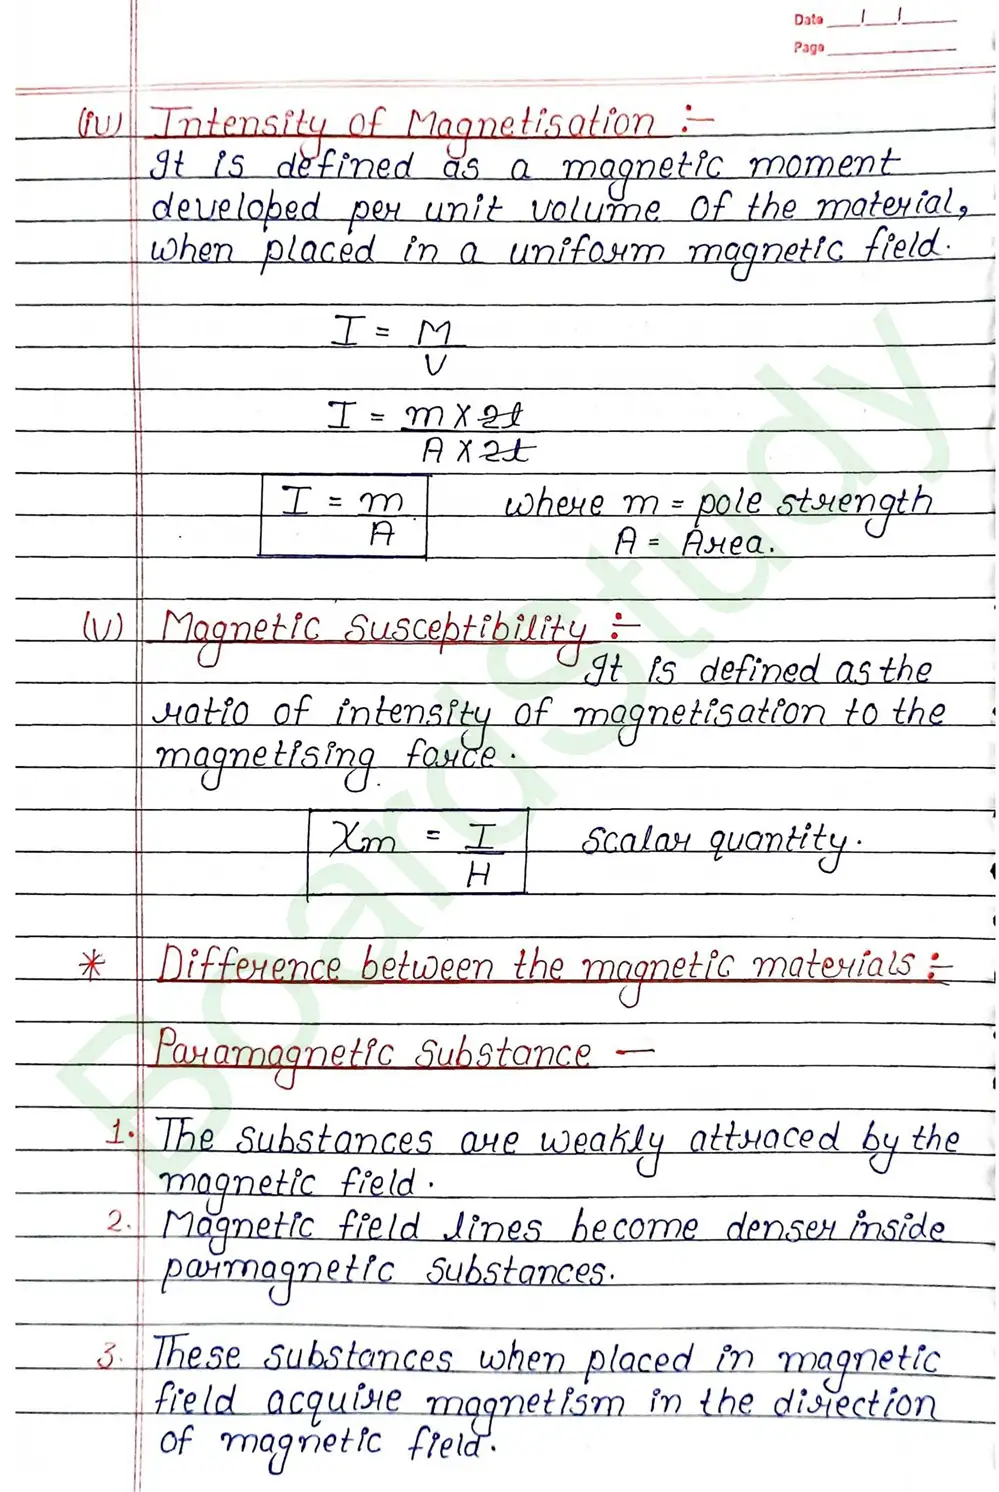 Date
Page
(iv) Intensity of Magnetisation :-
It is defined as a magnetic moment
developed per unit volume of the material,
when placed in a uniform magnetic field.
I = M
V
I = m X 2l
A X 2l
I = m
A
where m = pole strength
A = Area.
(v) Magnetic Susceptibility :-
It is defined as the
ratio of intensity of magnetisation to the
magnetising force.
Xm = I
H
Scalar quantity.
* Difference between the magnetic materials :-
Paramagnetic Substance —
1. The substances are weakly attraced by the
magnetic field.
2. Magnetic field lines become denser inside
parmagnetic substances.
3. These substances when placed in magnetic
field acquire magnetism in the direction
of magnetic field.
BoardStudy